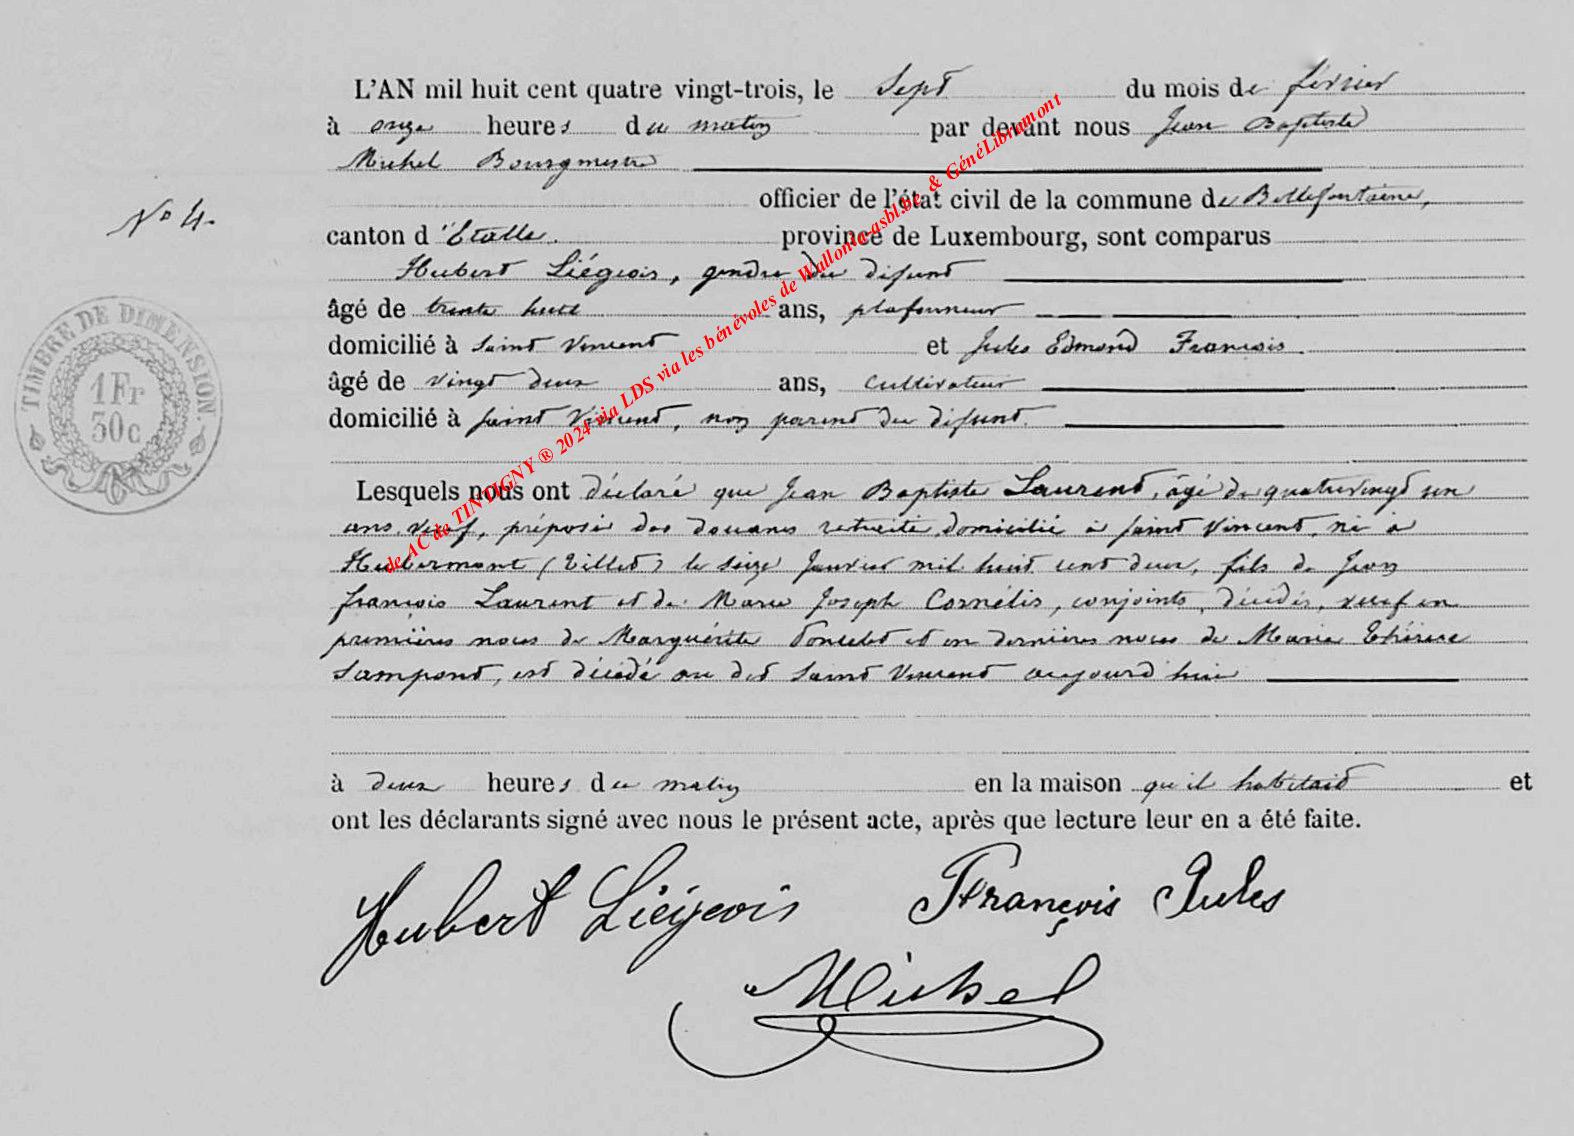 L'AN mil huit cent quatre vingt-trois, le Sept du mois de février
à onze heures du matin par devant nous Jean Baptiste
Michel Bourgmestre
officier de l'état civil de la commune de Bellefontaine,
N° 4.
canton d'Etalle. province de Luxembourg, sont comparus
Hubert Liégeois, gendre du difunt
âgé de trente huit ans, plafonneur
domicilié à Saint Vincent et Jules Edmond François
âgé de vingt deux ans, cultivateur
domicilié à Saint Vincent, non parent du difunt.
TIMBRE DE DIMENSION.
1 Fr
30 c
Lesquels nous ont déclaré que Jean Baptiste Laurent, âgé de quatrevingt un
ans, veuf, préposé des douanes retraité, domicilié à Saint Vincent, né à
Hubermont (Tillet) le seize Janvier mil huit cent deux, fils de Jean
françois Laurent et de Marie Joseph Cornélis, conjoints, décédés, veuf en
premières noces de Marguérite Poncelet et en dernières noces de Marie Thérèse
Lampont, est décédé au dit Saint Vincent aujourd'hui
à deux heures du matin en la maison qu'il habitait et
ont les déclarants signé avec nous le présent acte, après que lecture leur en a été faite.
Hubert Liégeois François Jules
Michel
de AC de TINTIGNY ® 2024 via LDS via les bénévoles de Wallonia-asbl.be & GénéLibramont